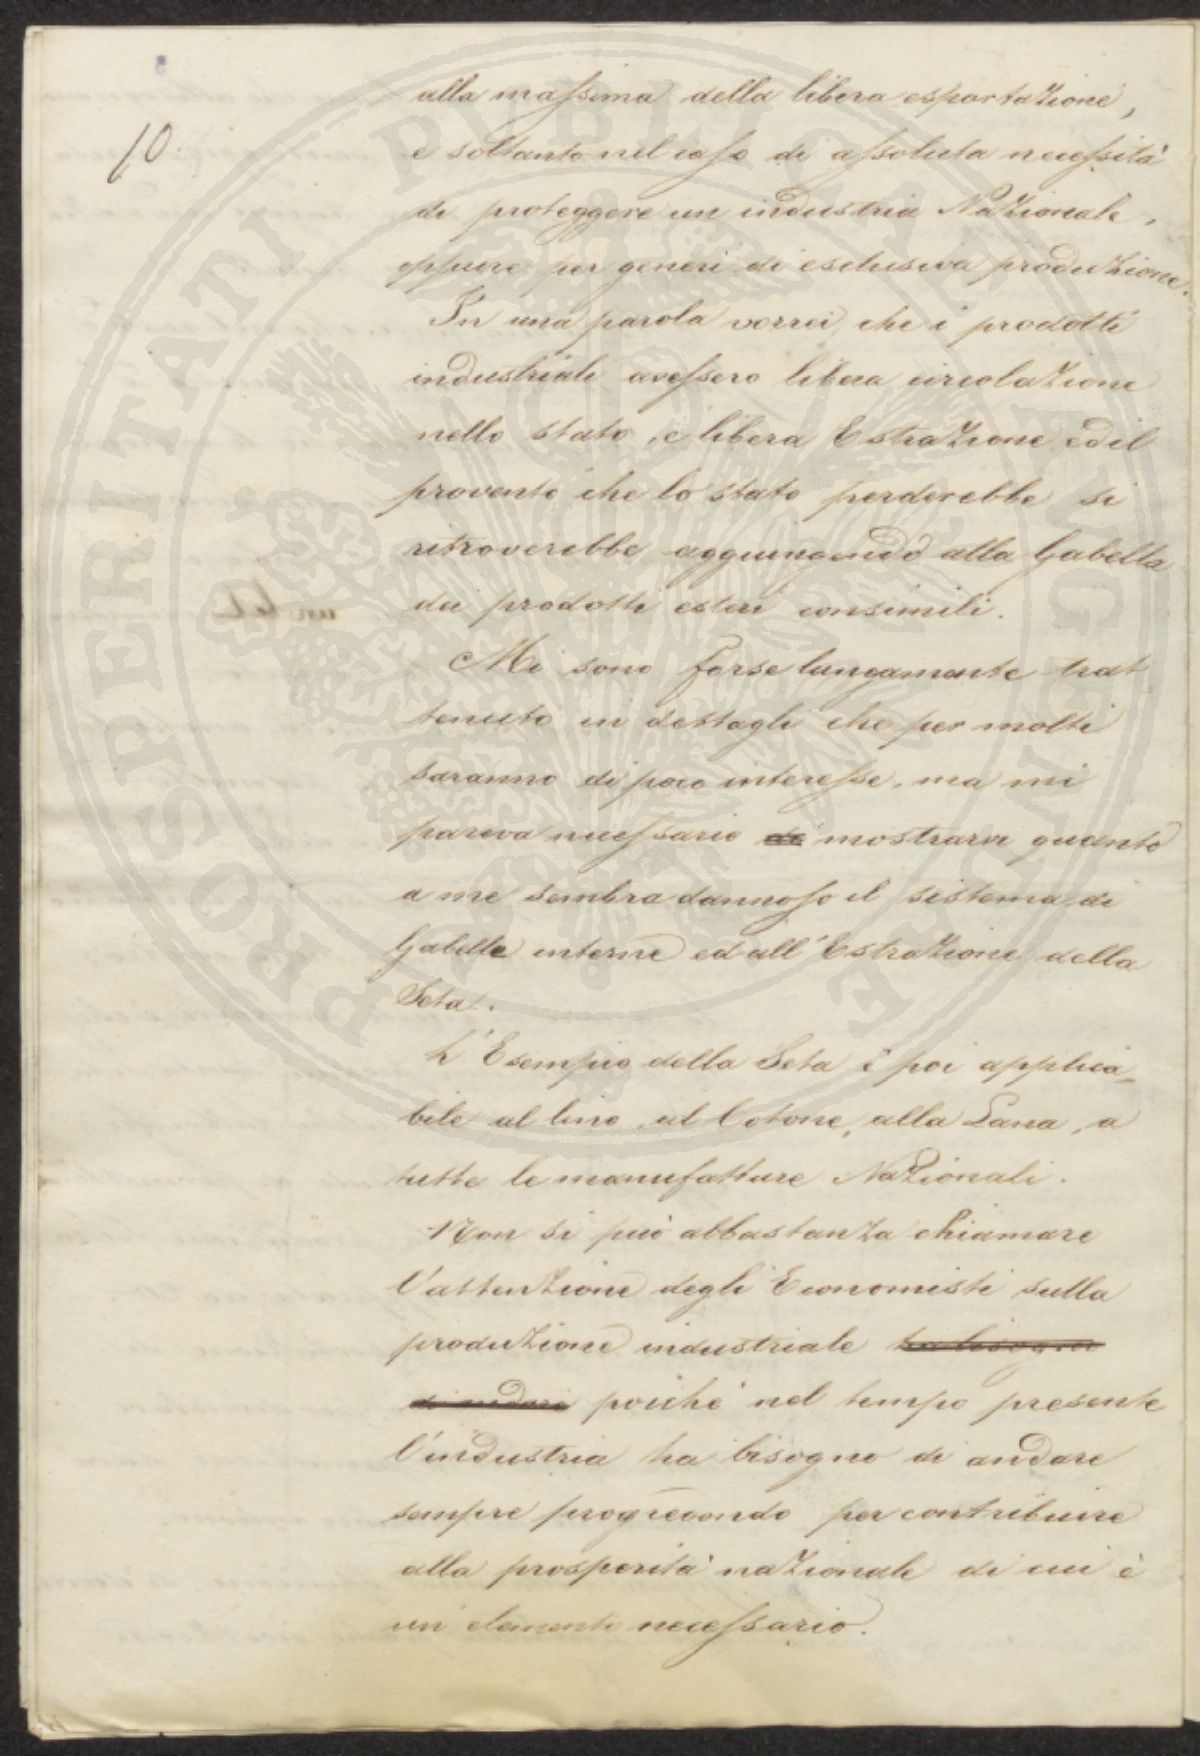 10.
alla massima della libera esportazione,
e soltanto nel caso di assoluta necessità
di proteggere un industria Nazionale,
oppure per generi di esclusiva produzione.
In una parola vorrei, che i prodotti
industriali avessero libera circolazione
nello stato, e libera Estrazione, ed il
provento che lo stato perderebbe si
ritroverebbe aggiungendo alla Gabella
dei prodotti esteri consimili.
Mi sono forse lungamente trat
tenuto in dettagli che per molti
saranno di poco interesse, ma mi
pareva necessario di mostrarvi quanto
a me sembra dannoso il sistema di
Gabelle interne ed all'Estrazione della
Seta.
L'Esempio della Seta è poi applica=
bile al lino, al Cotone, alla Lana, a
tutte le manufatture Nazionali.
Non si può abbastanza chiamare
l'attenzione degli Economisti sulla
produzione industriale ha bisogno
di andare poichè nel tempo presente
l'industria ha bisogno di andare
sempre progredendo per contribuire
alla prosperità nazionale di cui è
un elemento necessario.
PROSPERITATI PUBLICAE AUGENDAE